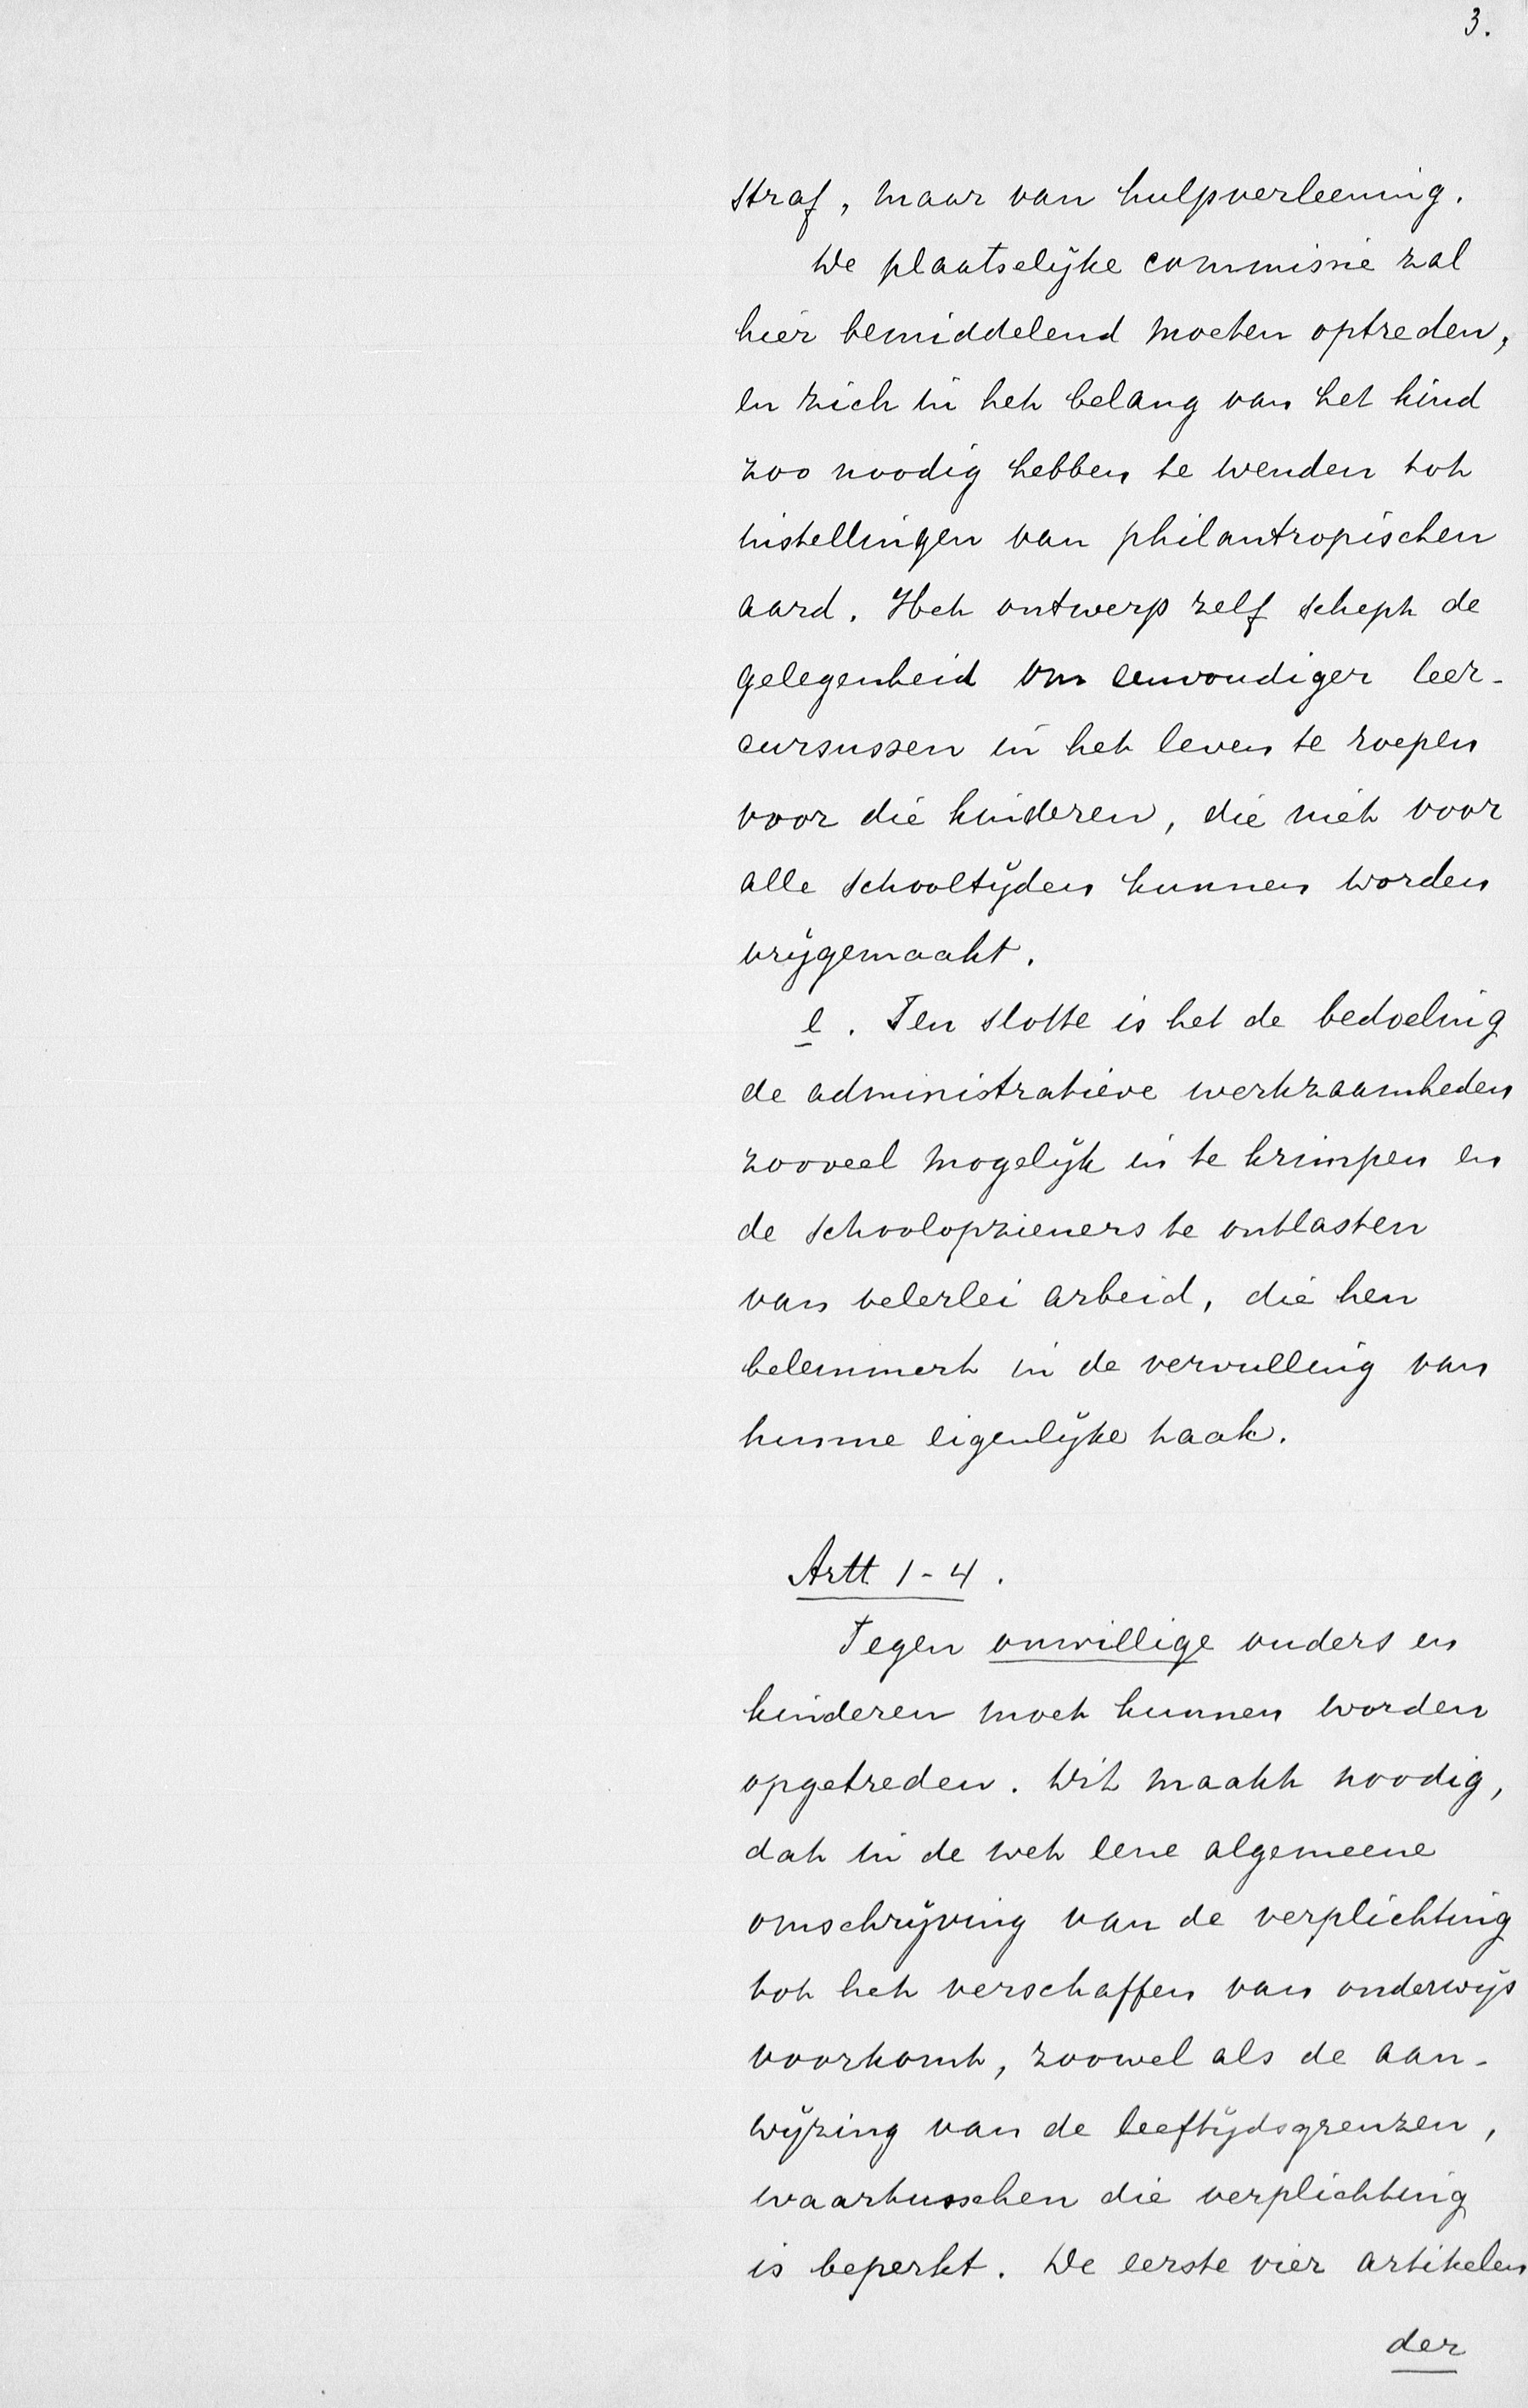 3.
straf, maar van hulpverleening.
De plaatselijke commissie zal
hier bemiddelend moeten optreden,
en zich in het belang van het kind
zoo noodig hebben te wenden tot
instellingen van philantropischen
aard. Het ontwerp zelf schept de
gelegenheid om eenvoudiger leer-
cursussen in het leven te roepen
voor die kinderen, die niet voor
alle schooltijden kunnen worden
vrijgemaakt.
e. Ten slotte is het de bedoeling
de administratieve werkzaamheden
zooveel mogelijk in te krimpen en
de schoolopzieners te ontlasten
van velerlei arbeid, die hen
belemmert in de vervulling van
hunne eigenlijke taak.
Artt 1-4.
Tegen onwillige ouders en
kinderen moet kunnen worden
opgetreden. Dit maakt noodig,
dat in de wet eene algemeene
omschrijving van de verplichting
tot het verschaffen van onderwijs
voorkomt, zoowel als de aan-
wijzing van de leeftijdsgrenzen,
waartusschen die verplichting
is beperkt. De eerste vier artikelen
der